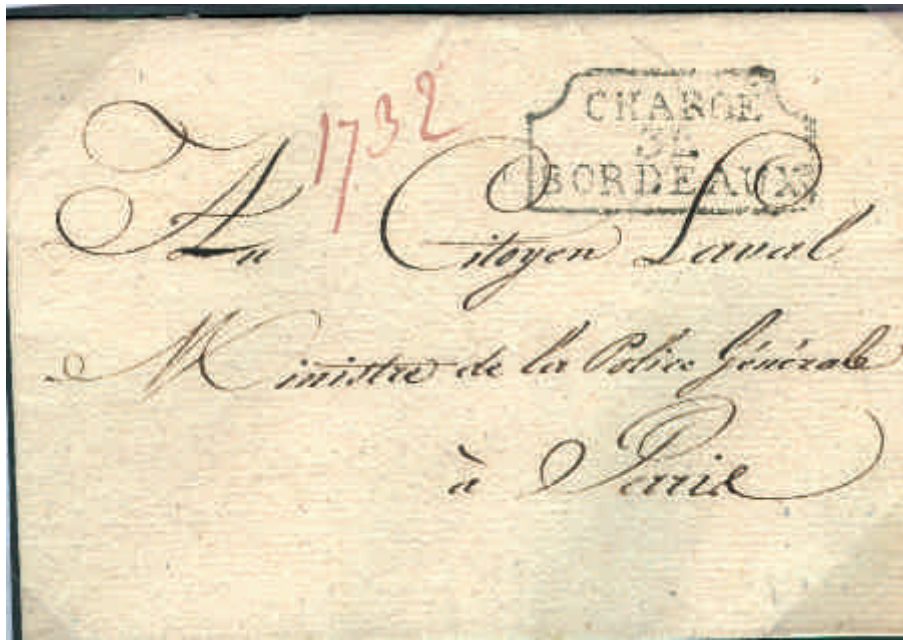 1732
CHARGÉ
32
BORDEAUX
Au Citoyen Laval
Ministre de la Police Générale
à Paris